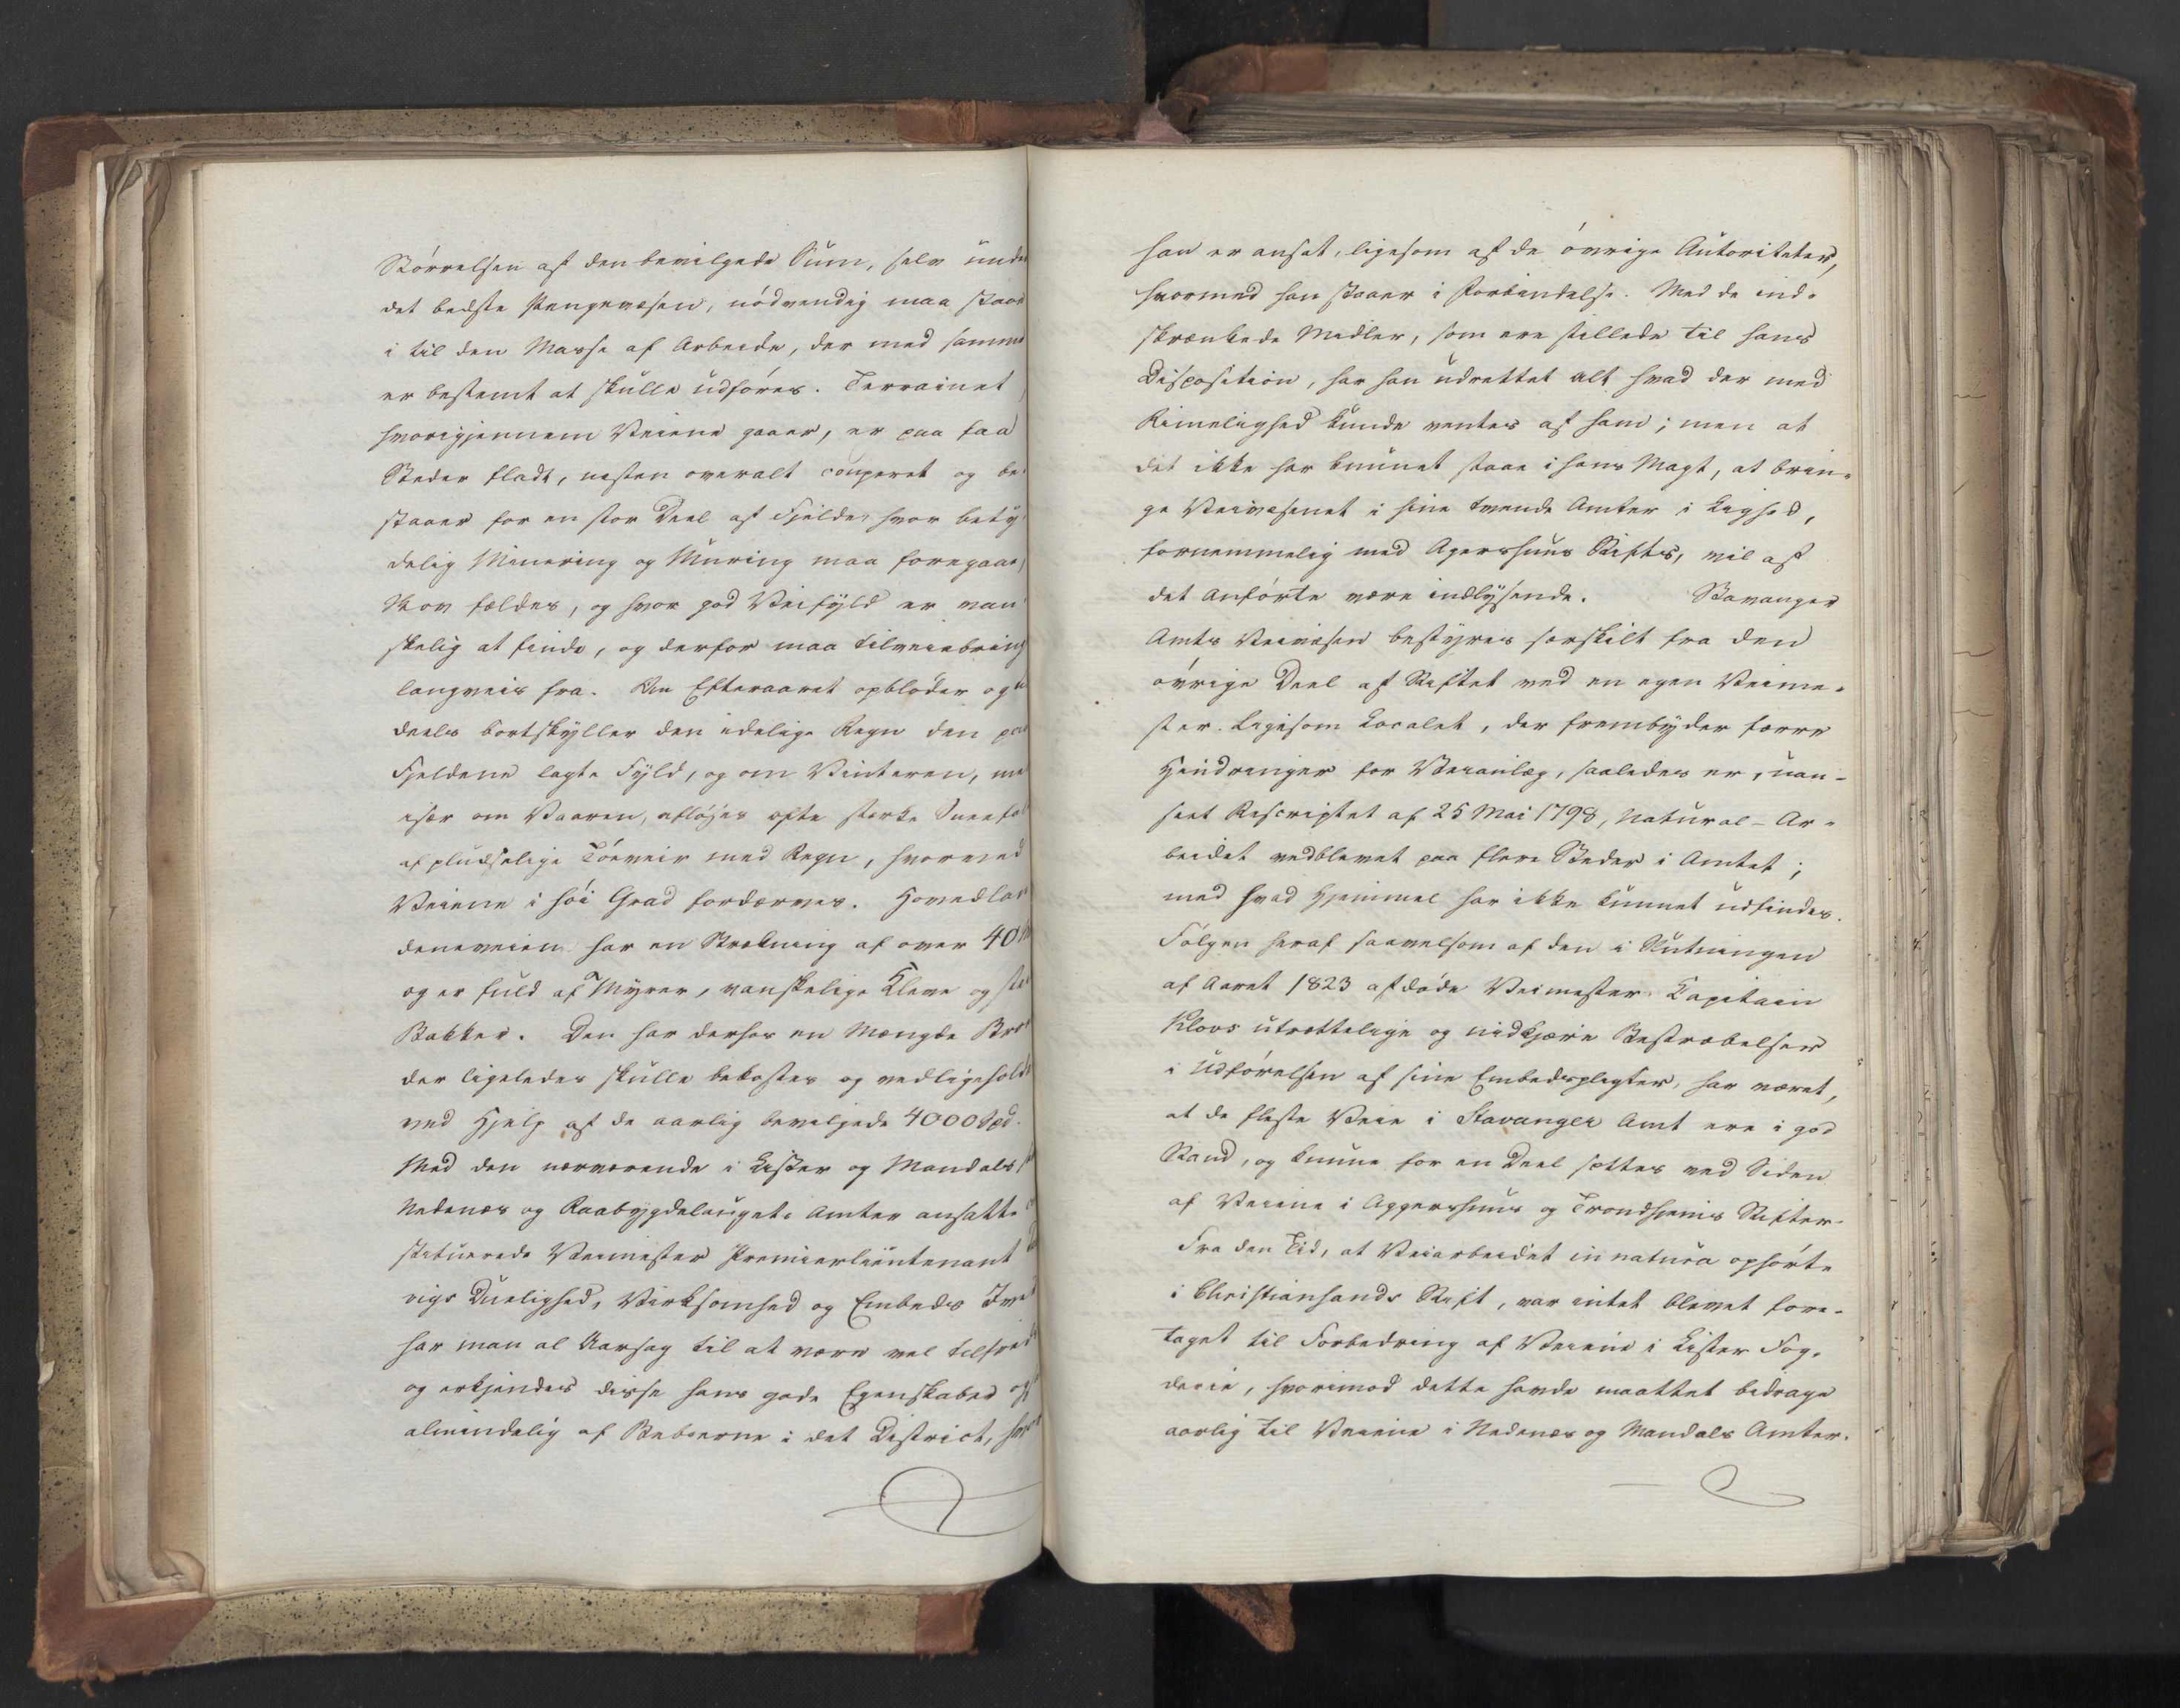 Størrelsen af den bevilgede Sum, selv unde
det bedste Pengevæsen, nødvendig maa staae
i til den Masse af Arbeide, der med samme
er bestemt at skulle udføres. Terrainet
hvorigjennem Veiene gaaer, er paa faa
Steder fladt, nesten overalt couperet og be-
staaer for en stor Deel af Fjelde, hvor bety-
delig Minering og Muring maa foregaae,
Skov fældes, og hvor god Veifyld er van-
skelig at finde, og derfor maa tilveiebring
langveis fra. Om Efteraaret opbløder og
deels bortskyller den idelige Regn den paa
Fjeldene lagte Fyld, og om Vinteren, me
især om Vaaren, afløses ofte sterke Sneefal
af pludselige Tøeveir med Regn, hvorved
Veiene i høi Grad fordærves. Hovedlan-
deveien har en Strekning af over 40
og er fuld af Myrer, vanskelige Kleve og ste
Bakker. Den har derhos en Mængde Broe
der ligeledes skulle bekostes og vedligehold
ved Hjelp af de aarlig bevilgede 4000 Spd.
Med den nærværende i Lister og Mandals
Nedenes og Raabygdelaugets Amter ansatte
stituerede Veimester Premierlieutenant
rigs Duelighed, Virksomhed og Embeds Iver
har man al Aarsag til at være vel tilfreds
og erkjendes disse hans gode Egenskaber og
almindelig af Beboerne i det District, hvor
han er ansat, ligesom af de øvrige Autoriteter,
hvormed han staaer i Forbindelse. Med de ind-
skrænkede Midler, som ere stillede til hans
Disposition, har han udrettet alt hvad der med
Rimelighed kunde ventes af ham; men at
det ikke har kunnet staae i hans Magt, at brin-
ge Veivæsenet i sine tvende Amter i Lighed,
fornemmelig med Agershuus Stifts, vil af
det Anførte være indlysende. Stavanger
Amts Veivæsen bestyres særskilt fra den
øvrige Deel af Stiftet ved en egen Veime-
ster. Ligesom Localet, der frembyder færre
Hindringer for Veianlæg, saaledes er, uan-
seet Rescriptet af 25 Mai 1798, Natural-Ar-
beidet vedblevet paa flere Steder i Amtet;
med hvad Hjemmel har ikke kunnet udfindes.
Følgen heraf saavelsom af den i Slutningen
af Aaret 1823 afdøde Veimester Capitain
Kloos utrættelige og nidkjære Bestræbelser
i Udførelsen af sine Embedspligter, har været,
at de fleste Veie i Stavanger Amt ere i god
Stand, og kunne for en Deel settes ved Siden
af Veiene i Aggershuus og Trondhjems Stifter.
Fra den Tid, at Veiarbeidet in natura ophørte
i Christiansands Stift, var intet blevet fore-
taget til Forbedring af Veiene i Lister Fog-
derie, hvorimod dette havde maattet bidrage
aarlig til Veiene i Nedenes og Mandals Amter.